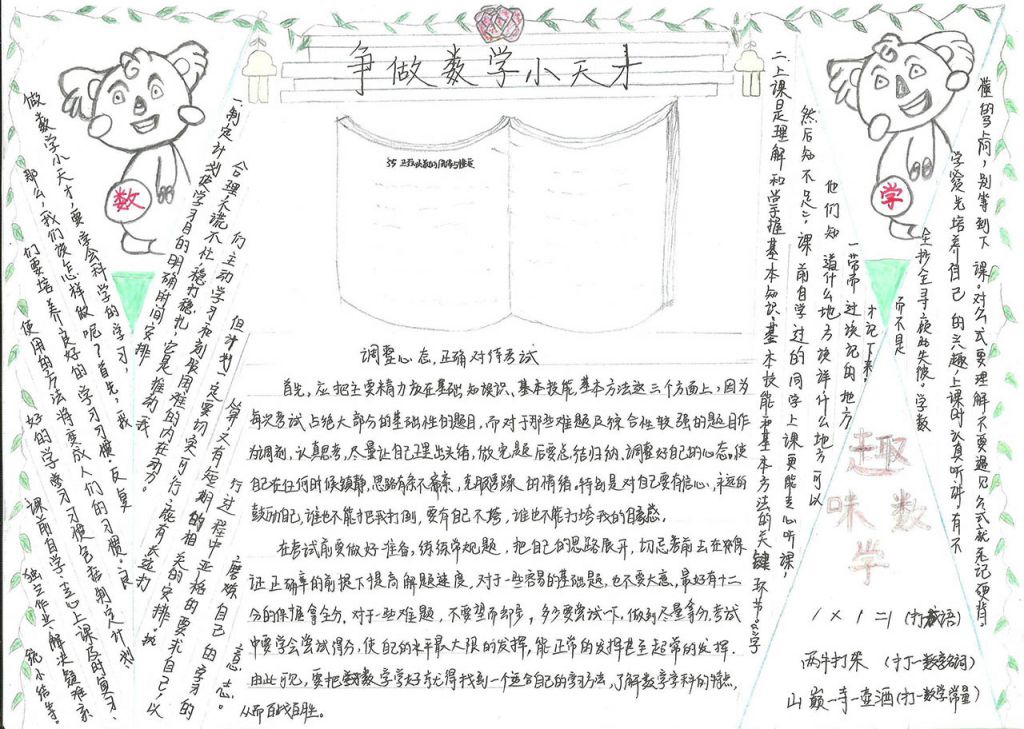 争做数学小天才
数
学
做数学小天才,要学会科学的学习,
那么,我们该怎样做呢?首先,我
们要培养良好的学习习惯。反复
使用的方法将变成人们的习惯。良
好的学习习惯包括制定计划、
课前自学、专心上课、及时复习、
独立作业、解决疑难、
一.制定计划使学习目的明确时间安排
合理不慌不忙,稳打稳扎,它是推动我
们主动学习和刻服困难的内在动力。
但计划一定要切实可行,既有长远打
算又有短期的相关的安排,执
行过程中严格的要求自己,以
磨炼自己的学习的
意志。
调整心态,正确对待考试
首先,应把主要精力放在基础知识、基本技能、基本方法这三个方面上,因为
每次考试占绝大部分的基础性的题目,而对于那些难题及综合性较强的题目作
为调剂,认真思考,尽量让自己理出头绪,做完题后要总结归纳,调整好自己的心态。使
自己在任何时候镇静,思路有条不紊,克服浮躁的情绪。特别是对自己要有信心,永远的
鼓励自己,谁也不能把我打倒,要有自己不垮,谁也不能打垮我的自豪感。
在考试前要做好准备,练练常规题,把自己的思路展开,切忌考前去在确保
证正确率的前提下提高解题速度,对于一些容易的基础题,也不要大意,最好有十二
分的保握拿全分,对于一些难题,不要望而却步,多多要尝试一下,做到尽量拿分,考试
中要学会尝试得分,使自己的水平最大限的发挥,能正常的发挥甚至超常的发挥.
由此可见,要把数学学好尤得找到一个适合自己的学习方法,了解数学学科的特点,
从而百战百胜。
二上课是理解和学握基本知识、基本技能和基本方法的关键环节。“学
然后知不足”,课前自学过的同学上课更能专心听课,
他们知道什么地方该详什么地方可以
一带而过该记的地方
才记下来,
而不是
全抄全录
学数
学
先培养自己的兴趣,上课时认真听讲有不
懂的与问,别等到下课。对公式要理解不要遇见公式就死记硬背
趣
味数
学
1×1=1(打成语)
两牛打架(打一数学名词)
山巅一寺一壶酒(打一数学常量)